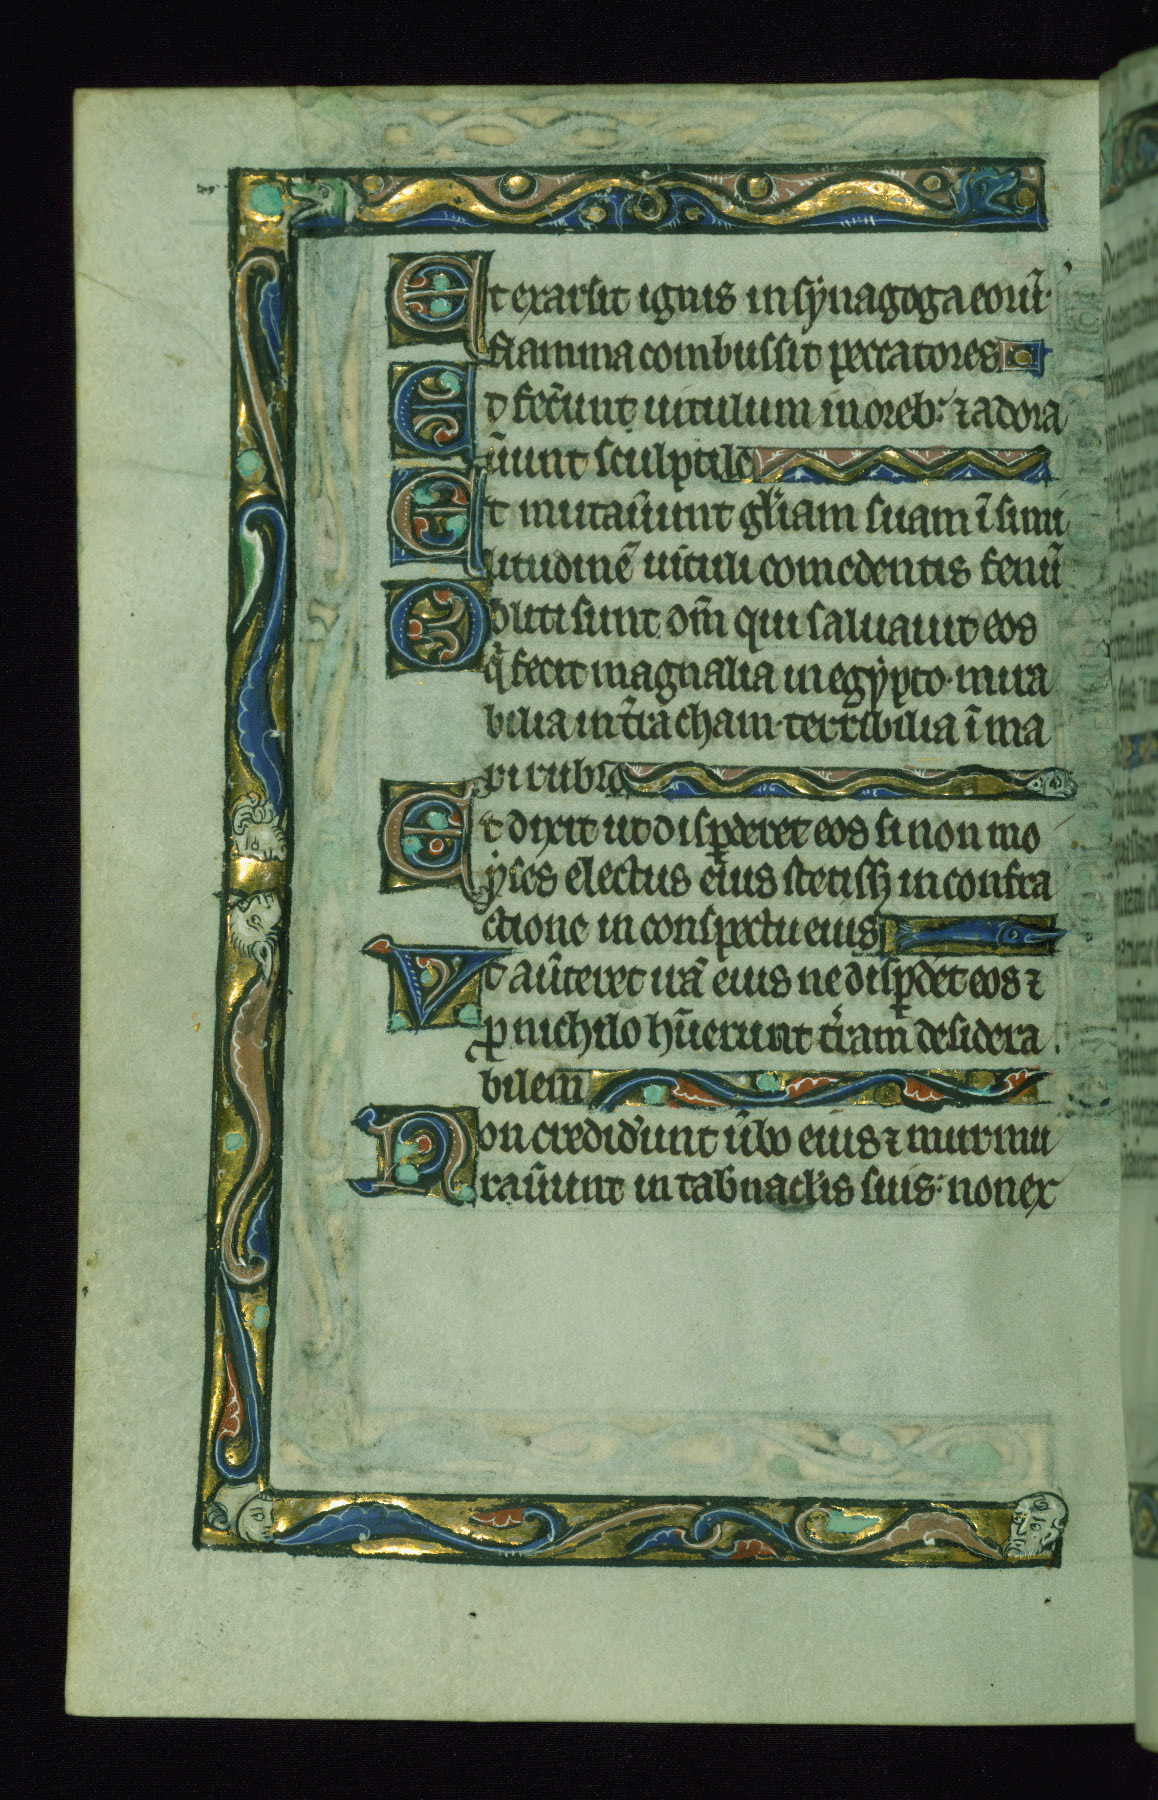 Et exarsit ignis in sẏnagoga eoru̅·
flamma combussit peccatores
Et fec̅unt uitulum in oreb: ⁊ adora
u̅unt sculptile
Et mutau̅unt gl̅iam suam ı̅ simi
litudine̅ uituli comedentis fenu̅
Obliti sunt om̅ qui saluauit eos
q̅ fecit magnalia in egẏpto· mira
bilia in t̅ra cham· terribilia ı̅ ma
ri rubro
Et dixit ut disꝑderet eos si non mo
ẏses electus eius stetiss; in confra
ctione in conspectu eius
Vt au̅teret ira̅ eius ne disꝑdet eos ⁊
ꝓ nichilo h̅uerunt t̅ram desidera
bilem
Non credid̕unt u̅bo eius ⁊ murmu
rau̅unt in tab̕nacl̕is suis: non ex